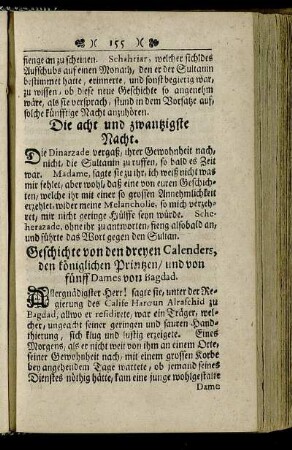 155
fienge an zu scheinen. Schehriar, welcher sich des
Auffschubs auf einen Monath, den er der Sultanin
bestimmet hatte, erinnerte, und sonst begierig war,
zu wissen, ob diese neue Geschichte so angenehm
wäre, als sie versprach, stund in dem Vorsatze auf,
solche künfftige Nacht anzuhören.
Die acht und zwantzigste
Nacht.
Die Dinarzade vergaß, ihrer Gewohnheit nach,
nicht, die Sultanin zu ruffen, so bald es Zeit
war. Madame, sagte sie zu ihr, ich weiß nicht was
mir fehlet, aber wohl, daß eine von euren Geschich-
ten, welche ihr mit einer so grossen Annehmlichkeit
erzehlet, wider meine Melancholie, so mich verzeh-
ret, mir nicht geringe Hülffe seyn würde. Sche-
herazade, ohne ihr zu antworten, fieng alsobald an,
und führte das Wort gegen den Sultan.
Geschichte von den dreyen Calenders,
den königlichen Printzen/ und von
fünff Dames von Bagdad.
Allergnädigster Herr! sagte sie, unter der Re-
gierung des Calife Haroun Alraschid zu
Bagdad, allwo er residirete, war ein Träger, wel-
cher, ungeacht seiner geringen und sauren Hand-
thierung, sich klug und lustig erzeigete. Eines
Morgens, als er nicht weit von ihm an einem Orte,
seiner Gewohnheit nach, mit einem grossen Korbe
bey angehendem Tage wartete, ob jemand seines
Dienstes nöthig hätte, kam eine junge wohlgestalte
Dame